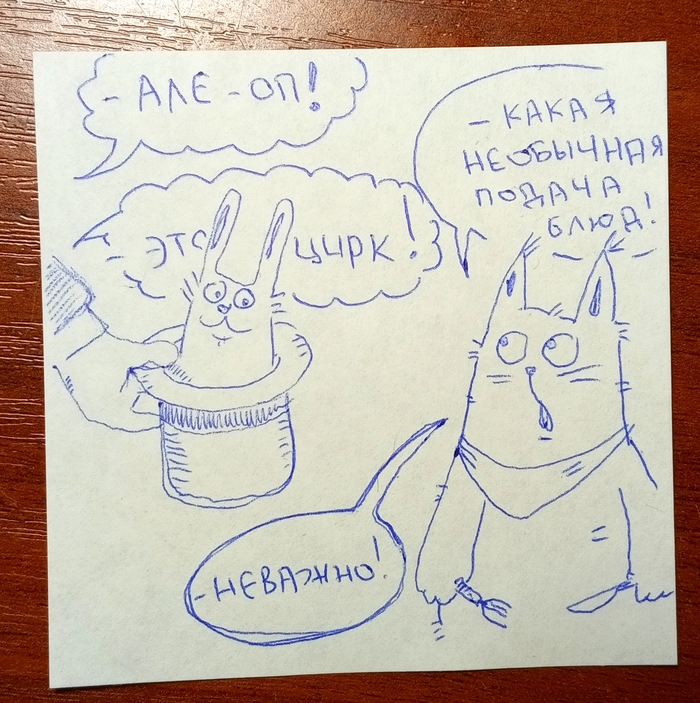 - АЛЕ - ОП!
- КАКАЯ
НЕОБЫЧНАЯ
ПОДАЧА
БЛЮД!
- ЭТО ЦИРК!
- НЕВАЖНО!